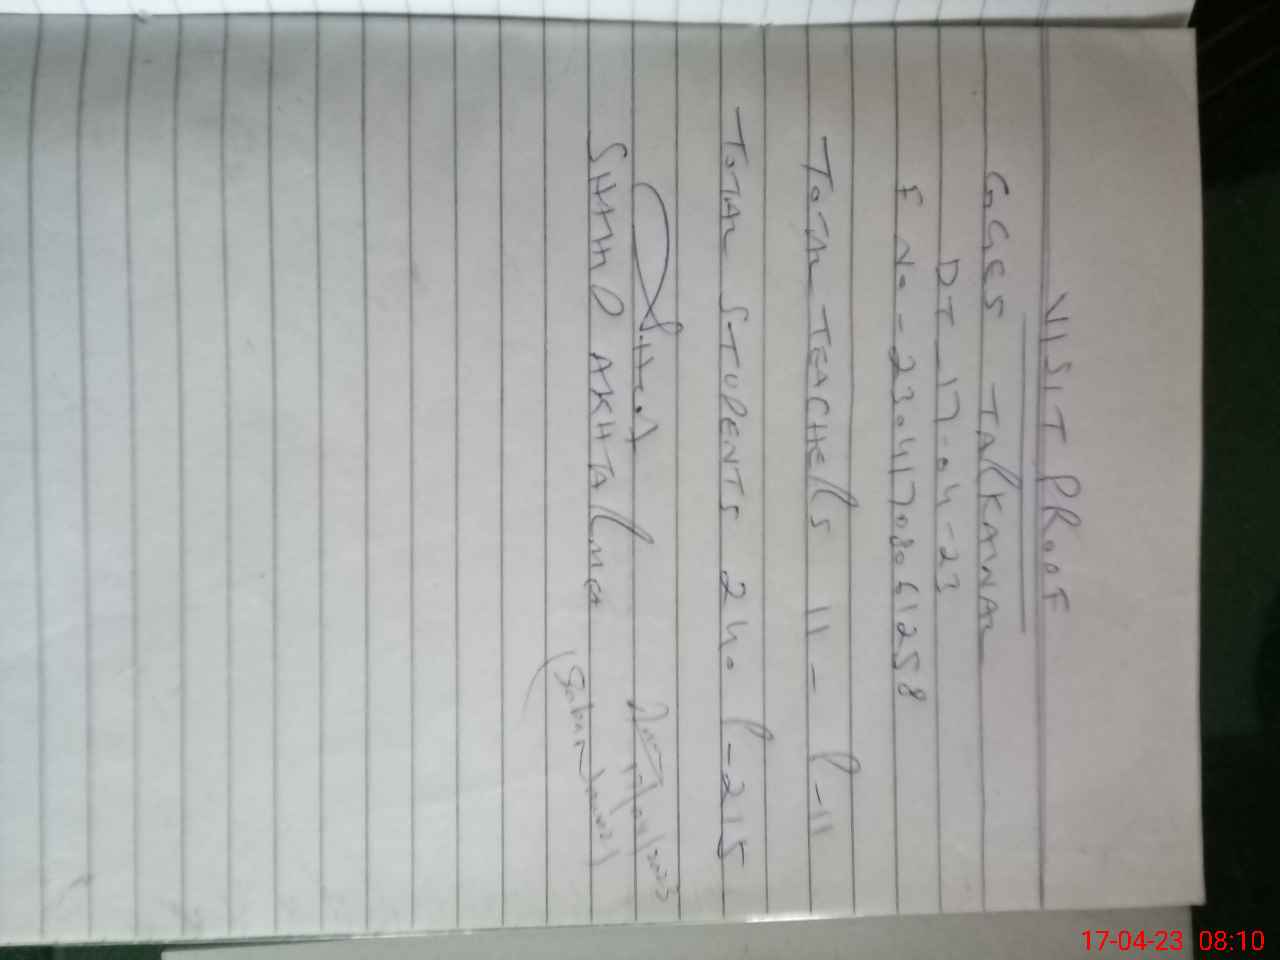 VISIT PROOF
GGES TARKAWAL
DT-17-04-23
F No - 23041708061258
TOTAL TEACHERS 11 - P-11
TOTAL STUDENTS 240 P-215
S.H.A
17/04/2023
AKHTAR
17-04-23 08:10